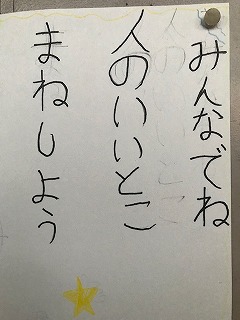 みんなでね
人のいいとこ
まねしよう